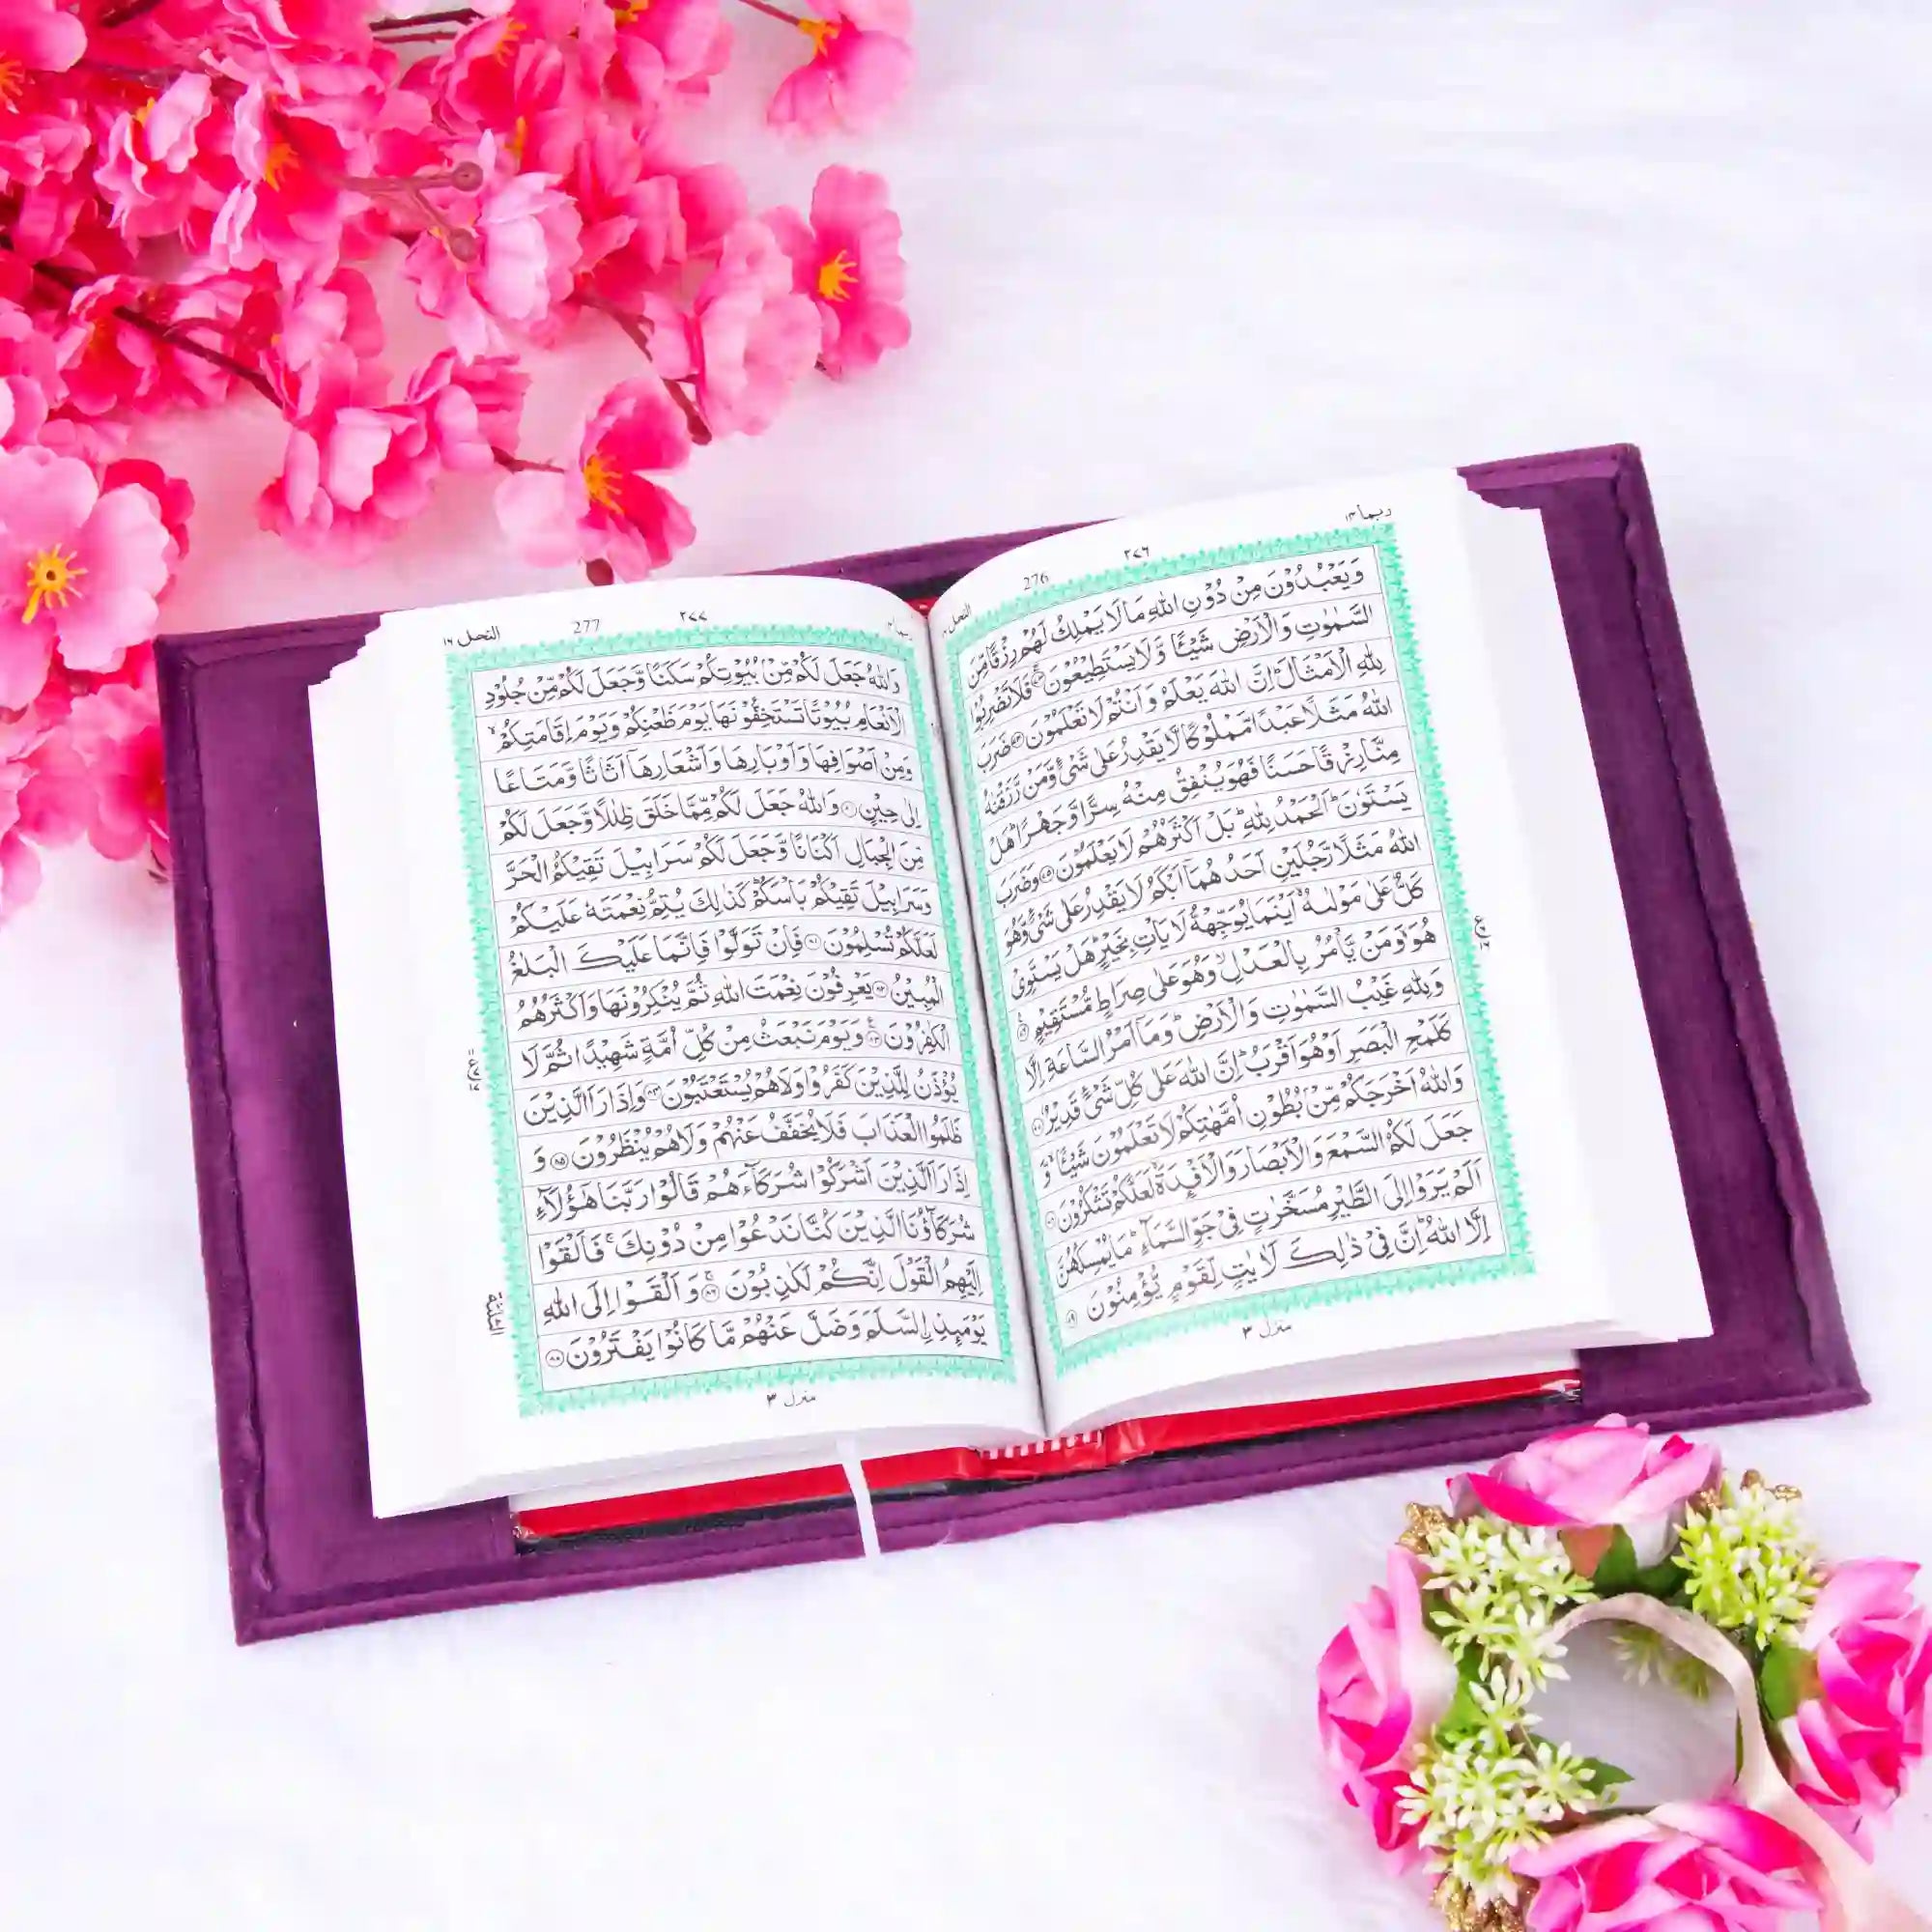 ربما ۱۴
۲۷۶
276
وَيَعْبُدُوْنَ مِنْ دُوْنِ اللّٰهِ مَا لَا يَمْلِكُ لَهُمْ رِزْقًا مِّنَ
السَّمٰوٰتِ وَالْاَرْضِ شَيْـًٔا وَّلَا يَسْتَطِيْعُوْنَ ۚ‏﴿۷۳﴾ فَلَا تَضْرِبُوْا
لِلّٰهِ الْاَمْثَالَ ؕ اِنَّ اللّٰهَ يَعْلَمُ وَاَنْتُمْ لَا تَعْلَمُوْنَ ﴿۷۴﴾ ضَرَبَ
اللّٰهُ مَثَلًا عَبْدًا مَّمْلُوْكًا لَّا يَقْدِرُ عَلٰى شَىْءٍ وَّمَنْ رَّزَقْنٰهُ
مِنَّا رِزْقًا حَسَنًا فَهُوَ يُنْفِقُ مِنْهُ سِرًّا وَّجَهْرًا ؕ هَلْ
يَسْتَوٗنَ ؕ اَلْحَمْدُ لِلّٰهِ ؕ بَلْ اَكْثَرُهُمْ لَا يَعْلَمُوْنَ ﴿۷۵﴾ وَضَرَبَ
اللّٰهُ مَثَلًا رَّجُلَيْنِ اَحَدُهُمَاۤ اَبْكَمُ لَا يَقْدِرُ عَلٰى شَىْءٍ وَّهُوَ
كَلٌّ عَلٰى مَوْلٰىهُ ۙ اَيْنَمَا يُوَجِّهْهُّ لَا يَاْتِ بِخَيْرٍ ؕ هَلْ يَسْتَوِىْ
هُوَ ۙ وَمَنْ يَّاْمُرُ بِالْعَدْلِ ۙ وَهُوَ عَلٰى صِرَاطٍ مُّسْتَقِيْمٍ ﴿۷۶﴾
وَلِلّٰهِ غَيْبُ السَّمٰوٰتِ وَالْاَرْضِ ؕ وَمَاۤ اَمْرُ السَّاعَةِ اِلَّا
كَلَمْحِ الْبَصَرِ اَوْ هُوَ اَقْرَبُ ؕ اِنَّ اللّٰهَ عَلٰى كُلِّ شَىْءٍ قَدِيْرٌ ﴿۷۷﴾
وَاللّٰهُ اَخْرَجَكُمْ مِّنْۢ بُطُوْنِ اُمَّهٰتِكُمْ لَا تَعْلَمُوْنَ شَيْـًٔا ۙ وَّ
جَعَلَ لَكُمُ السَّمْعَ وَالْاَبْصَارَ وَالْاَفْـِٕدَةَ ۙ لَعَلَّكُمْ تَشْكُرُوْنَ ﴿۷۸﴾
اَلَمْ يَرَوْا اِلَى الطَّيْرِ مُسَخَّرٰتٍ فِىْ جَوِّ السَّمَآءِ ؕ مَا يُمْسِكُهُنَّ
اِلَّا اللّٰهُ ؕ اِنَّ فِىْ ذٰلِكَ لَاٰيٰتٍ لِّقَوْمٍ يُّؤْمِنُوْنَ ﴿۷۹﴾
منزل ۳
۲۷۷
277
النحل ۱۶
وَاللّٰهُ جَعَلَ لَكُمْ مِّنْۢ بُيُوْتِكُمْ سَكَنًا وَّجَعَلَ لَكُمْ مِّنْ جُلُوْدِ
الْاَنْعَامِ بُيُوْتًا تَسْتَخِفُّوْنَهَا يَوْمَ ظَعْنِكُمْ وَيَوْمَ اِقَامَتِكُمْ ۙ
وَمِنْ اَصْوَافِهَا وَاَوْبَارِهَا وَاَشْعَارِهَاۤ اَثَاثًا وَّمَتَاعًا
اِلٰى حِيْنٍ ﴿۸۰﴾ وَاللّٰهُ جَعَلَ لَكُمْ مِّمَّا خَلَقَ ظِلٰلًا وَّجَعَلَ لَكُمْ
مِّنَ الْجِبَالِ اَكْنَانًا وَّجَعَلَ لَكُمْ سَرَابِيْلَ تَقِيْكُمُ الْحَرَّ
وَسَرَابِيْلَ تَقِيْكُمْ بَاْسَكُمْ ؕ كَذٰلِكَ يُتِمُّ نِعْمَتَهٗ عَلَيْكُمْ
لَعَلَّكُمْ تُسْلِمُوْنَ ﴿۸۱﴾ فَاِنْ تَوَلَّوْا فَاِنَّمَا عَلَيْكَ الْبَلٰغُ
الْمُبِيْنُ ﴿۸۲﴾ يَعْرِفُوْنَ نِعْمَتَ اللّٰهِ ثُمَّ يُنْكِرُوْنَهَا وَاَكْثَرُهُمُ
الْكٰفِرُوْنَ ﴿۸۳﴾ وَيَوْمَ نَبْعَثُ مِنْ كُلِّ اُمَّةٍ شَهِيْدًا ثُمَّ لَا
يُؤْذَنُ لِلَّذِيْنَ كَفَرُوْا وَلَا هُمْ يُسْتَعْتَبُوْنَ ﴿۸۴﴾ وَاِذَا رَاَ الَّذِيْنَ
ظَلَمُوا الْعَذَابَ فَلَا يُخَفَّفُ عَنْهُمْ وَلَا هُمْ يُنْظَرُوْنَ ﴿۸۵﴾ وَ
اِذَا رَاَ الَّذِيْنَ اَشْرَكُوْا شُرَكَآءَهُمْ قَالُوْا رَبَّنَا هٰۤؤُلَآءِ
شُرَكَآؤُنَا الَّذِيْنَ كُنَّا نَدْعُوْا مِنْ دُوْنِكَ ۚ فَاَلْقَوْا
اِلَيْهِمُ الْقَوْلَ اِنَّكُمْ لَكٰذِبُوْنَ ۚ﴿۸۶﴾ وَاَلْقَوْا اِلَى اللّٰهِ
يَوْمَئِذِ ۨالسَّلَمَ وَضَلَّ عَنْهُمْ مَّا كَانُوْا يَفْتَرُوْنَ ﴿۸۷﴾
الثلثة
منزل ۳